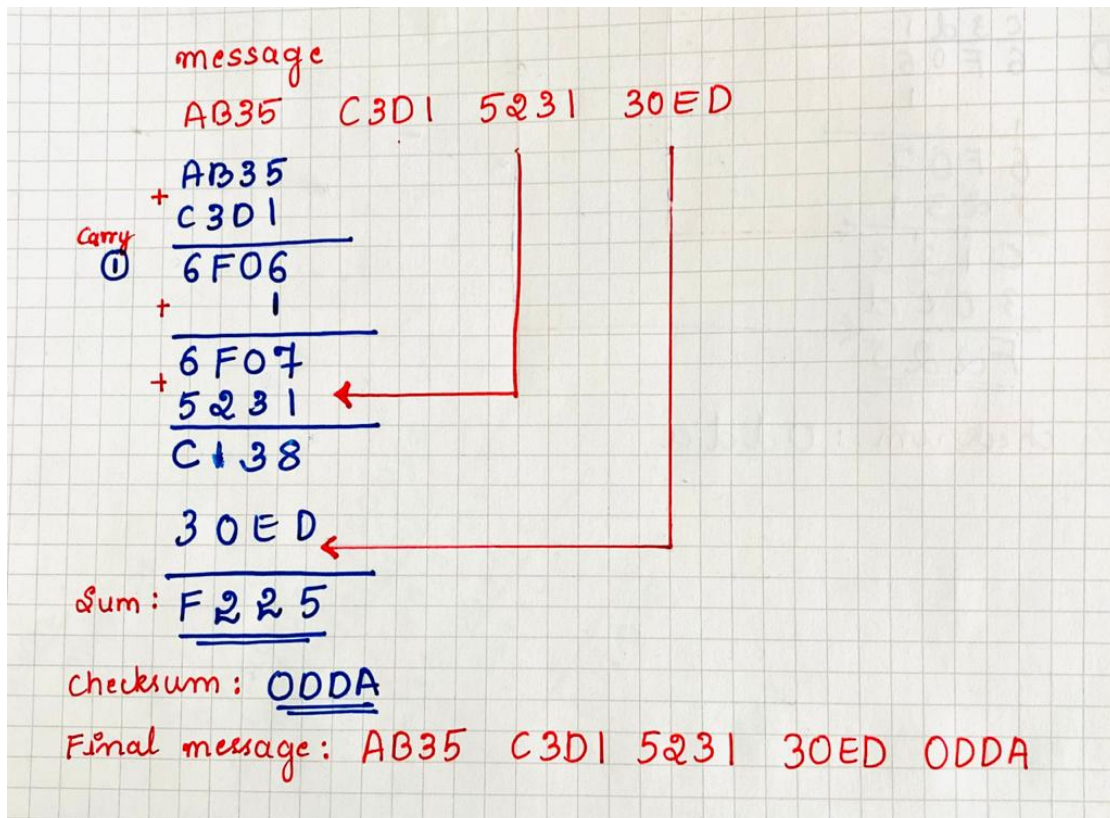 message
AB35 C3D1 5231 30ED
AB35
+
C3D1
Carry
1 6F06
+ 1
6F07
+
5231
C138
30ED
Sum: F225
checksum: 0DDA
Final message: AB35 C3D1 5231 30ED 0DDA